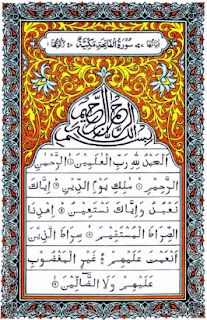 سُوۡرَةُ الۡفَاتِحَةِ مَكِّيَّةٌ
بِسۡمِ اللّٰهِ الرَّحۡمٰنِ الرَّحِيۡمِ
اَلۡحَمۡدُ لِلّٰهِ رَبِّ الۡعٰلَمِيۡنَ ۙ الرَّحۡمٰنِ
الرَّحِيۡمِ ۙ مٰلِكِ يَوۡمِ الدِّيۡنِ ؕ اِيَّاكَ
نَعۡبُدُ وَاِيَّاكَ نَسۡتَعِيۡنُ ؕ اِهۡدِنَا
الصِّرَاطَ الۡمُسۡتَقِيۡمَ ۙ صِرَاطَ الَّذِيۡنَ
اَنۡعَمۡتَ عَلَيۡهِمۡ ۙ غَيۡرِ الۡمَغۡضُوۡبِ
عَلَيۡهِمۡ وَلَا الضَّآلِّيۡنَ